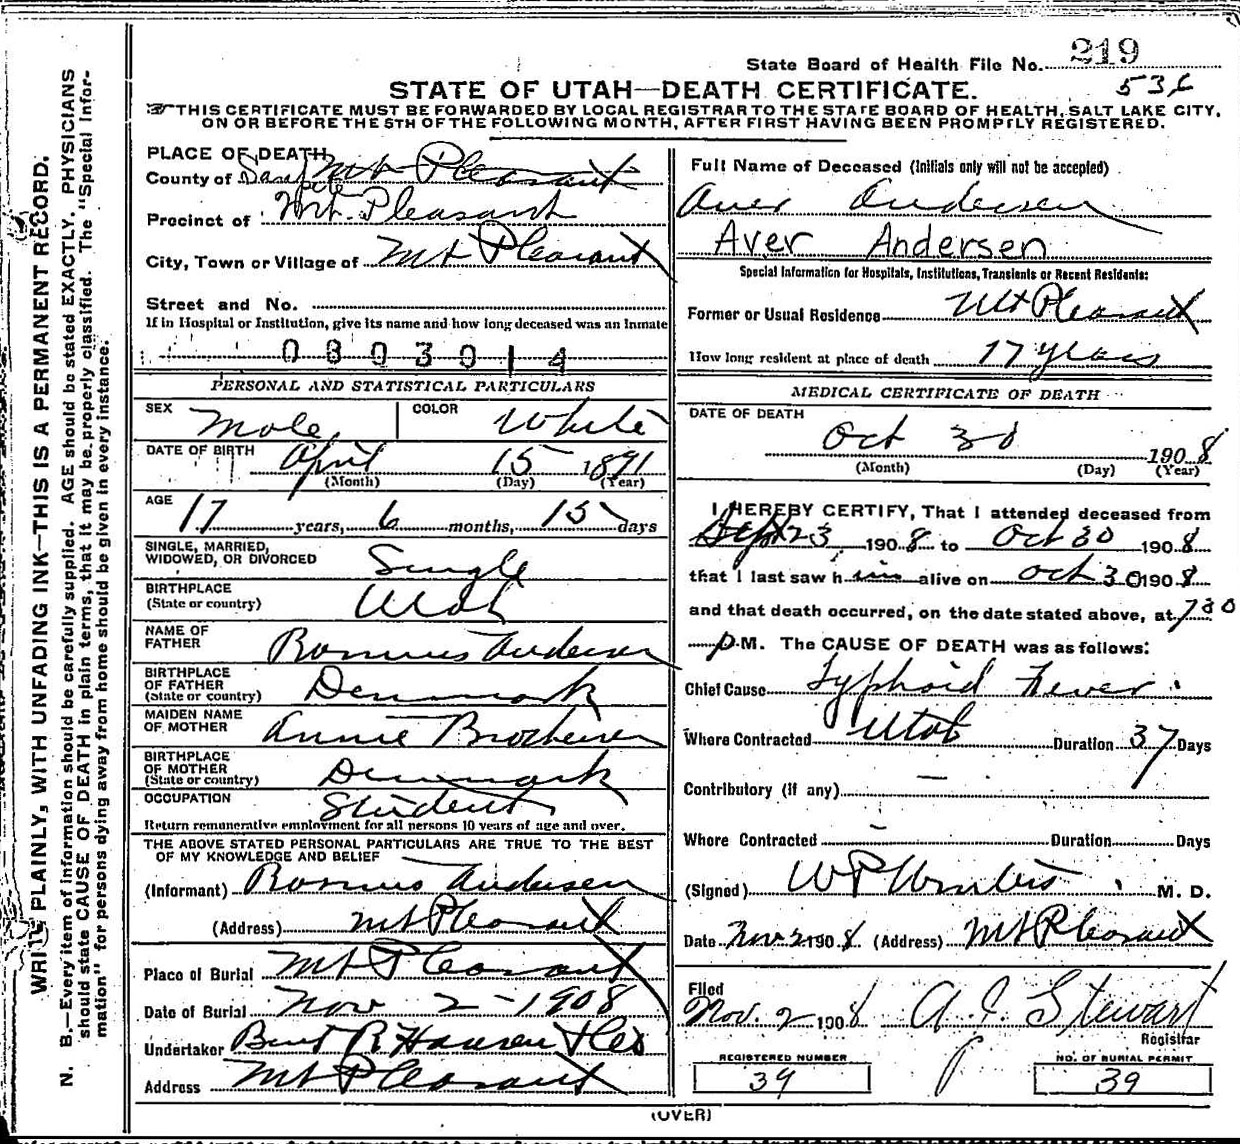 State Board of Health File No. 219
536
STATE OF UTAH—DEATH CERTIFICATE.
THIS CERTIFICATE MUST BE FORWARDED BY LOCAL REGISTRAR TO THE STATE BOARD OF HEALTH, SALT LAKE CITY,
ON OR BEFORE THE 5TH OF THE FOLLOWING MONTH, AFTER FIRST HAVING BEEN PROMPTLY REGISTERED.
WRITE PLAINLY, WITH UNFADING INK—THIS IS A PERMANENT RECORD.
N. B.—Every item of information should be carefully supplied. AGE should be stated EXACTLY. PHYSICIANS
should state CAUSE OF DEATH in plain terms, that it may be properly classified. The "Special Infor-
mation" for persons dying away from home should be given in every instance.
PLACE OF DEATH
County of Sanpete Mt Pleasant
Precinct of Mt. Pleasant
City, Town or Village of Mt Pleasant
Street and No.
If in Hospital or Institution, give its name and how long deceased was an Inmate
0803014
PERSONAL AND STATISTICAL PARTICULARS
SEX Male COLOR White
DATE OF BIRTH April 15 1891
(Month) (Day) (Year)
AGE 17 years, 6 months, 15 days
SINGLE, MARRIED,
WIDOWED, OR DIVORCED Single
BIRTHPLACE
(State or country) Utah
NAME OF
FATHER Rasmus Andersen
BIRTHPLACE
OF FATHER
(State or country) Denmark
MAIDEN NAME
OF MOTHER Annie
BIRTHPLACE
OF MOTHER
(State or country) Denmark
OCCUPATION Student
Return remunerative employment for all persons 10 years of age and over.
THE ABOVE STATED PERSONAL PARTICULARS ARE TRUE TO THE BEST
OF MY KNOWLEDGE AND BELIEF
(Informant) Rasmus Andersen
(Address) Mt Pleasant
Place of Burial Mt Pleasant
Date of Burial Nov 2 - 1908
Undertaker R Hansen
Address Mt Pleasant
Full Name of Deceased (Initials only will not be accepted)
Aver Andersen
Aver Andersen
Special Information for Hospitals, Institutions, Transients or Recent Residents:
Former or Usual Residence Mt Pleasant
How long resident at place of death 17 years
MEDICAL CERTIFICATE OF DEATH
DATE OF DEATH
Oct 30 1908
(Month) (Day) (Year)
I HEREBY CERTIFY, That I attended deceased from
Sept 23 1908 to Oct 30 1908
that I last saw him alive on Oct 30 1908
and that death occurred, on the date stated above, at 730
P.M. The CAUSE OF DEATH was as follows:
Chief Cause Typhoid Fever
Where Contracted Utah Duration 37 Days
Contributory (if any) —
Where Contracted Duration Days
(Signed) W P Winters M. D.
Date Nov 2 1908 (Address) Mt Pleasant
Filed
Nov. 2 1908 Stewart
Registrar
REGISTERED NUMBER
39
NO. OF BURIAL PERMIT
39
(OVER)